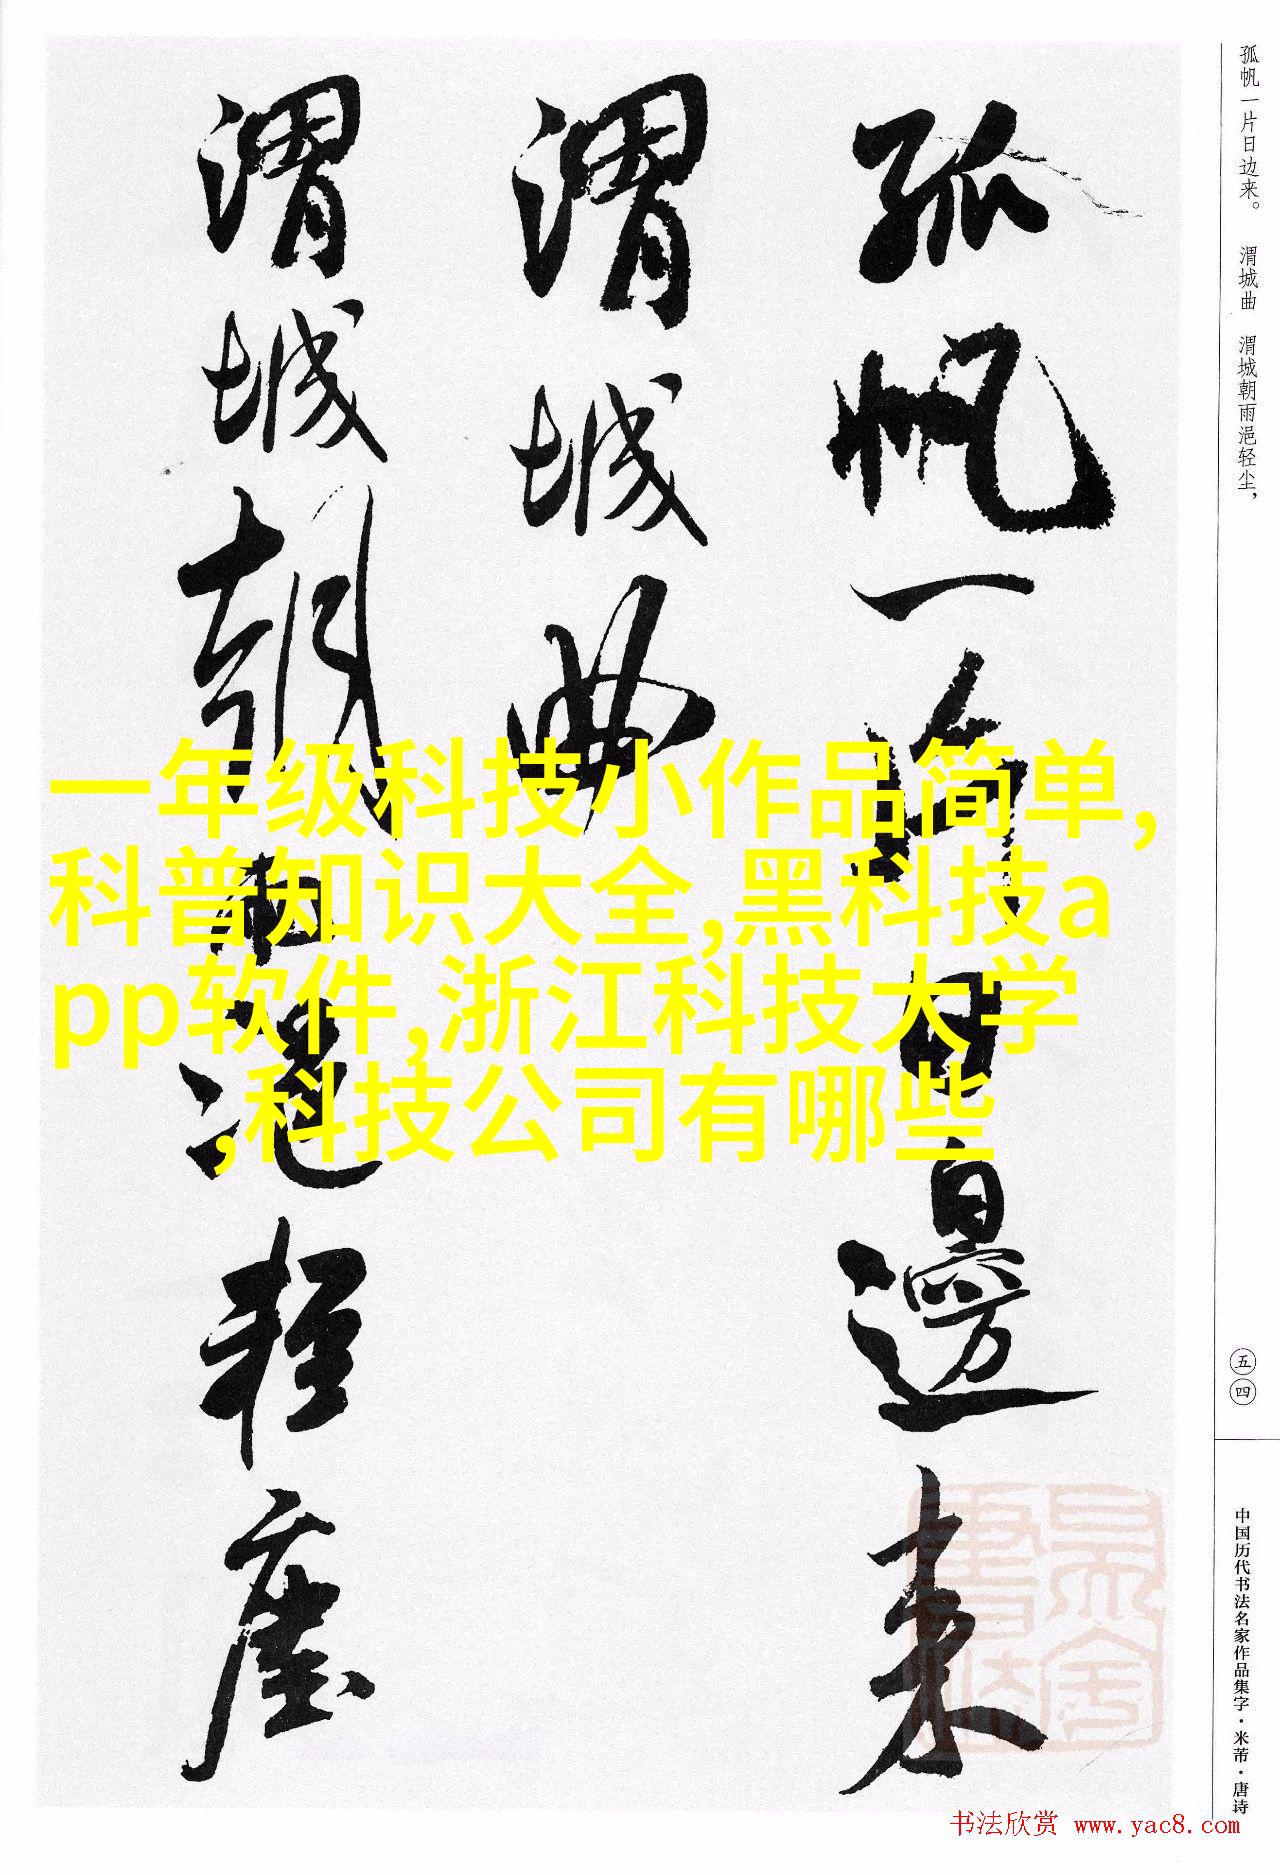 孤帆一片日边来。 渭城曲 渭城朝雨浥轻尘，
孤帆一片日邊来
渭城曲
渭城朝雨浥轻塵
一年级科技小作品简单,
科普知识大全,黑科技a
pp软件,浙江科技大学
,科技公司有哪些
五四
中国历代书法名家作品集字·米芾·唐诗
书法欣赏 www.yac8.com